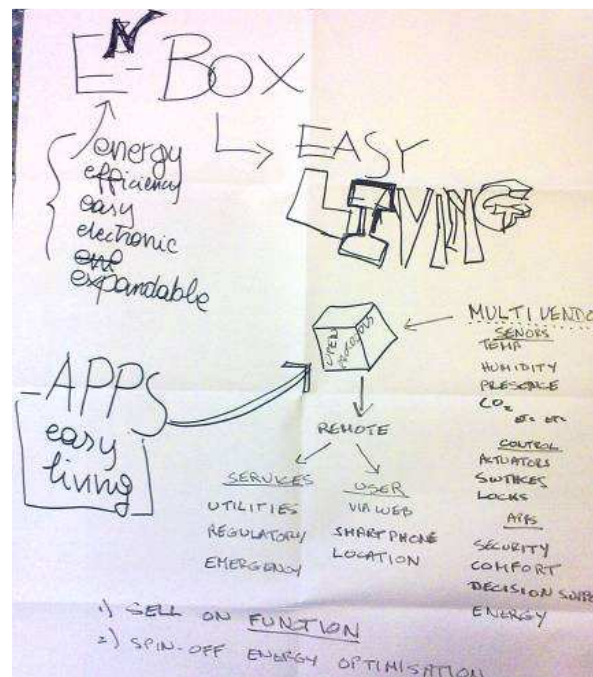 EN-BOX
energy
efficiency
easy
electronic
expandable
EASY
LIVING
APPS
easy
living
OPEN
PROTOCOLS
MULTIVENDO
SENORS
TEMP
HUMIDITY
PRESENCE
CO₂
ETC ETC
CONTROL
ACTUATORS
LOCKS
APPS
SECURITY
COMFORT
DECISION SUPPO
ENERGY
REMOTE
SERVICES
UTILITIES
REGULATORY
EMERGENCY
USER
VIA WEB
SMARTPHONE
LOCATION
1) SELL ON FUNCTION
2) SPIN-OFF ENERGY OPTIMISATION